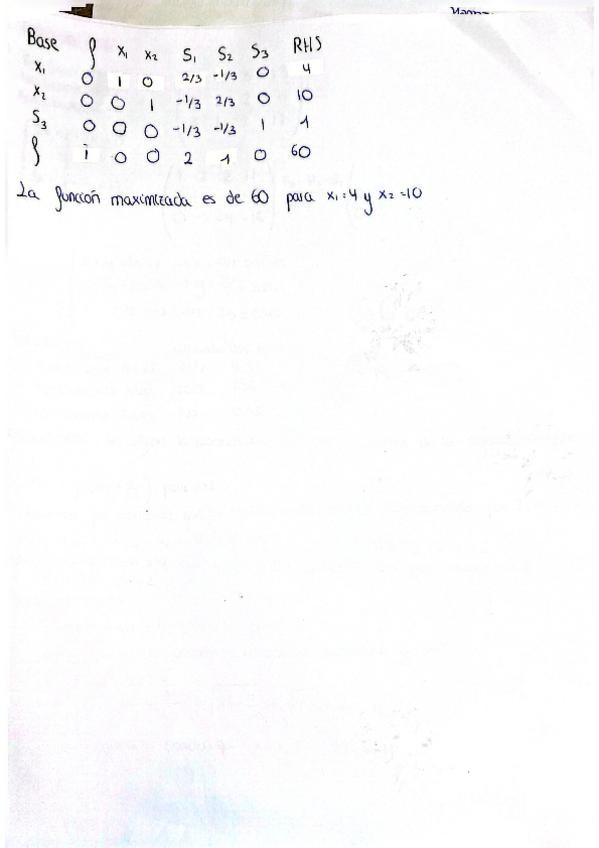 Base ƒ x₁ x₂ S₁ S₂ S₃ RHS
x₁ 0 1 0 2/3 -1/3 0 4
x₂ 0 0 1 -1/3 2/3 0 10
S₃ 0 0 0 -1/3 -1/3 1 1
ƒ 1 0 0 2 1 0 60
La función maximizada es de 60 para x₁=4 y x₂=10